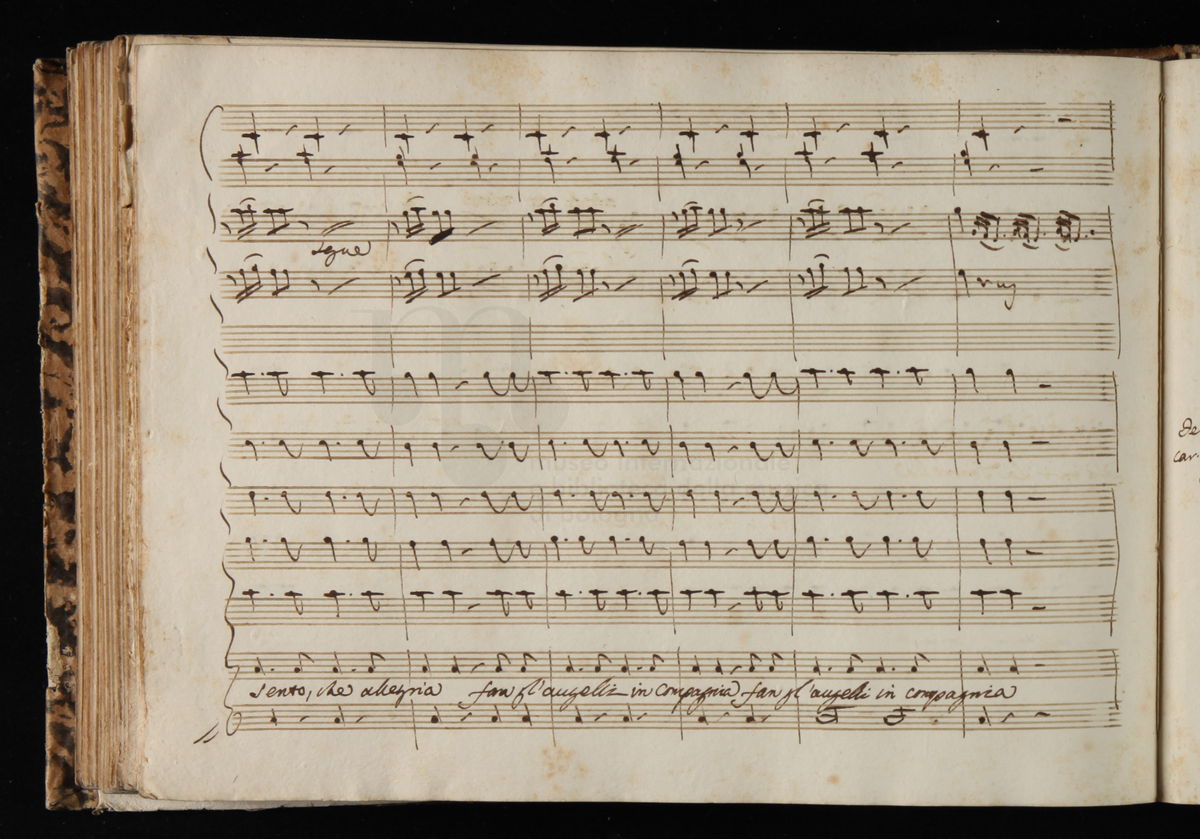 segue
sento, che allegria fan gl'augelli in compagnia fan gl'augelli in compagnia
museo internazionale
e biblioteca della musica
di bologna